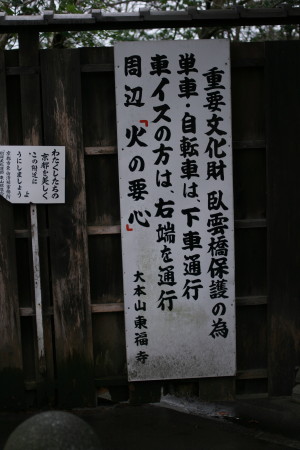 重要文化財 臥雲橋保護の為
単車・自転車は、下車通行
車イスの方は、右端を通行
周辺「火の要心」
大本山東福寺
わたくしたちの
京都を美しく
この附近に
うにしましょう